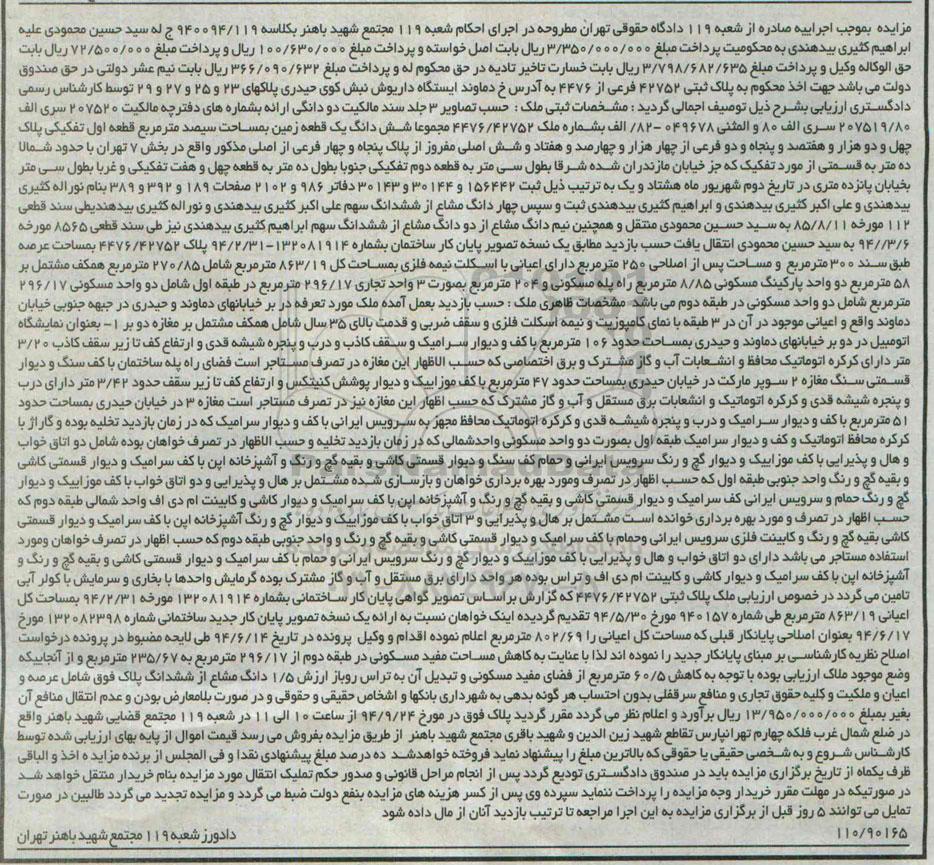 مزایده بموجب اجراییه صادره از شعبه ۱۱۹ دادگاه حقوقی تهران مطروحه در اجرای احکام شعبه ۱۱۹ مجتمع شهید باهنر بکلاسه ۹۴۰۰۹۴/۱۱۹ ج له سید حسین محمودی علیه
ابراهیم کثیری بیدهندی به محکومیت پرداخت مبلغ ۳/۳۵۰/۰۰۰/۰۰۰ ریال بابت اصل خواسته و پرداخت مبلغ ۱۰۰/۶۳۰/۰۰۰ ریال و پرداخت مبلغ ۷۲/۵۰۰/۰۰۰ ریال بابت
حق الوکاله وکیل و پرداخت مبلغ ۳/۷۹۸/۶۸۲/۶۳۵ ریال بابت خسارت تاخیر تادیه در حق محکوم له و پرداخت مبلغ ۳۶۶/۰۹۰/۶۳۲ ریال بابت نیم عشر دولتی در حق صندوق
دولت می باشد جهت اخذ محکوم به پلاک ثبتی ۴۲۷۵۲ فرعی از ۴۴۷۶ به آدرس خ دماوند ایستگاه داریوش نبش کوی حیدری پلاکهای ۲۳ و ۲۵ و ۲۷ و ۲۹ توسط کارشناس رسمی
دادگستری ارزیابی بشرح ذیل توصیف اجمالی گردید : مشخصات ثبتی ملک : حسب تصاویر ۳ جلد سند مالکیت دو دانگی ارائه بشماره های دفترچه مالکیت ۲۰۷۵۲۰ سری الف
۲۰۷۵۱۹/۸۰ سری الف ۸۰ و المثنی ۰۴۹۶۷۸ -۸۲/ الف بشماره ملک ۴۴۷۶/۴۲۷۵۲ مجموعا شش دانگ یک قطعه زمین بمساحت سیصد مترمربع قطعه اول تفکیکی پلاک
چهل و دو هزار و هفتصد و پنجاه و دو فرعی از چهار هزار و چهارصد و هفتاد و شش اصلی مفروز از پلاک پنجاه و چهار فرعی از اصلی مذکور واقع در بخش ۷ تهران با حدود شمالا
ده متر به قسمتی از مورد تفکیک که جز خیابان مازندران شده شرقا بطول سی متر به قطعه دوم تفکیکی جنوبا بطول ده متر به قطعه چهل و هفت تفکیکی و غربا بطول سی متر
بخیابان پانزده متری در تاریخ دوم شهریور ماه هشتاد و یک به ترتیب ذیل ثبت ۱۵۶۴۴۲ و ۳۰۱۴۴ و ۳۰۱۴۳ دفاتر ۹۸۶ و ۲۱۰۲ صفحات ۱۸۹ و ۳۹۲ و ۳۸۹ بنام نوراله کثیری
بیدهندی و علی اکبر کثیری بیدهندی و ابراهیم کثیری بیدهندی ثبت و سپس چهار دانگ مشاع از ششدانگ سهم علی اکبر کثیری بیدهندی و نوراله کثیری بیدهندیطی سند قطعی
۱۱۲ مورخه ۸۵/۸/۱۱ به سید حسین محمودی منتقل و همچنین نیم دانگ مشاع از دو دانگ مشاع از ششدانگ سهم ابراهیم کثیری بیدهندی نیز طی سند قطعی ۸۵۶۵ مورخه
۹۴//۳/۶ به سید حسین محمودی انتقال یافت حسب بازدید مطابق یک نسخه تصویر پایان کار ساختمان بشماره ۱۳۲۰۸۱۹۱۴-۹۴/۲/۳۱ پلاک ۴۴۷۶/۴۲۷۵۲ بمساحت عرصه
طبق سند ۳۰۰ مترمربع و مساحت پس از اصلاحی ۲۵۰ مترمربع دارای اعیانی با اسکلت نیمه فلزی بمساحت کل ۸۶۳/۱۹ مترمربع شامل ۲۷۰/۸۵ مترمربع همکف مشتمل بر
۵۸ مترمربع دو واحد پارکینگ مسکونی ۸/۸۵ مترمربع راه پله مسکونی و ۲۰۴ مترمربع بصورت ۳ واحد تجاری ۲۹۶/۱۷ مترمربع در طبقه اول شامل دو واحد مسکونی ۲۹۶/۱۷
مترمربع شامل دو واحد مسکونی در طبقه دوم می باشد مشخصات ظاهری ملک : حسب بازدید بعمل آمده ملک مورد تعرفه در بر خیابانهای دماوند و حیدری در جبهه جنوبی خیابان
دماوند واقع و اعیانی موجود در آن در ۳ طبقه با نمای کامپوزیت و نیمه اسکلت فلزی و سقف ضربی و قدمت بالای ۳۵ سال شامل همکف مشتمل بر مغازه دو بر ۱- بعنوان نمایشگاه
اتومبیل در دو بر خیابانهای دماوند و حیدری بمساحت حدود ۱۰۶ مترمربع با کف و دیوار سرامیک و سقف کاذب و درب و پنجره شیشه قدی و ارتفاع کف تا زیر سقف کاذب ۳/۲۰
متر دارای کرکره اتوماتیک محافظ و انشعابات آب و گاز مشترک و برق اختصاصی که حسب الاظهار این مغازه در تصرف مستاجر است فضای راه پله ساختمان با کف سنگ و دیوار
قسمتی سنگ مغازه ۲ سوپر مارکت در خیابان حیدری بمساحت حدود ۴۷ مترمربع با کف موزاییک و دیوار پوشش کنیتکس و ارتفاع کف تا زیر سقف حدود ۳/۴۲ متر دارای درب
و پنجره شیشه قدی و کرکره اتوماتیک و انشعابات برق مستقل و آب و گاز مشترک که حسب اظهار این مغازه نیز در تصرف مستاجر است مغازه ۳ در خیابان حیدری بمساحت حدود
۵۱ مترمربع با کف و دیوار سرامیک و درب و پنجره شیشه قدی و کرکره اتوماتیک محافظ مجهز به سرویس ایرانی با کف و دیوار سرامیک که در زمان بازدید تخلیه بوده و گاراژ با
کرکره محافظ اتوماتیک و کف و دیوار سرامیک طبقه اول بصورت دو واحد مسکونی واحدشمالی که در زمان بازدید تخلیه و حسب الاظهار در تصرف خواهان بوده شامل دو اتاق خواب
و هال و پذیرایی با کف موزاییک و دیوار گچ و رنگ سرویس ایرانی و حمام کف سنگ و دیوار قسمتی کاشی و بقیه گچ و رنگ و آشپزخانه اپن با کف سرامیک و دیوار قسمتی کاشی
و بقیه گچ و رنگ واحد جنوبی طبقه اول که حسب اظهار در تصرف ومورد بهره برداری خواهان و بازسازی شده مشتمل بر هال و پذیرایی و دو اتاق خواب با کف موزاییک و دیوار
گچ و رنگ حمام و سرویس ایرانی کف سرامیک و دیوار قسمتی کاشی و بقیه گچ و رنگ و آشپزخانه اپن با کف سرامیک و دیوار کاشی و کابینت ام دی اف واحد شمالی طبقه دوم که
حسب اظهار در تصرف و مورد بهره برداری خوانده است مشتمل بر هال و پذیرایی و ۳ اتاق خواب با کف موزاییک و دیوار گچ و رنگ آشپزخانه اپن با کف سرامیک و دیوار قسمتی
کاشی بقیه گچ و رنگ و کابینت فلزی سرویس ایرانی وحمام با کف سرامیک و دیوار قسمتی کاشی و بقیه گچ و رنگ و واحد جنوبی طبقه دوم که حسب اظهار در تصرف خواهان ومورد
استفاده مستاجر می باشد دارای دو اتاق خواب و هال و پذیرایی با کف موزاییک و دیوار گچ و رنگ سرویس ایرانی و حمام با کف سرامیک و دیوار قسمتی کاشی و بقیه گچ و رنگ و
آشپزخانه اپن با کف سرامیک و دیوار کاشی و کابینت ام دی اف و تراس بوده هر واحد دارای برق مستقل و آب و گاز مشترک بوده گرمایش واحدها با بخاری و سرمایش با کولر آبی
تامین می گردد در خصوص ارزیابی ملک پلاک ثبتی ۴۴۷۶/۴۲۷۵۲ که گزارش بر اساس تصویر گواهی پایان کار ساختمانی بشماره ۱۳۲۰۸۱۹۱۴ مورخه ۹۴/۲/۳۱ بمساحت کل
اعیانی ۸۶۳/۱۹ مترمربع طی شماره ۹۴۰۱۵۷ مورخ ۹۴/۵/۳۰ تقدیم گردیده اینک خواهان نسبت به ارائه یک نسخه تصویر پایان کار جدید ساختمانی شماره ۱۳۲۰۸۲۳۹۸ مورخ
۹۴/۶/۱۷ بعنوان اصلاحی پایانکار قبلی که مساحت کل اعیانی را ۸۰۲/۶۹ مترمربع اعلام نموده اقدام و وکیل پرونده در تاریخ ۹۴/۶/۱۴ طی لایحه مضبوط در پرونده درخواست
اصلاح نظریه کارشناسی بر مبنای پایانکار جدید را نموده اند لذا با عنایت به کاهش مساحت مفید مسکونی در طبقه دوم از ۲۹۶/۱۷ مترمربع به ۲۳۵/۶۷ مترمربع و از آنجاییکه
وضع موجود ملاک ارزیابی بوده با توجه به کاهش ۶۰/۵ مترمربع از فضای مفید مسکونی و تبدیل آن به تراس روباز ارزش ۱/۵ دانگ مشاع از ششدانگ پلاک فوق شامل عرصه و
اعیان و ملکیت و کلیه حقوق تجاری و منافع سرقفلی بدون احتساب هر گونه بدهی به شهرداری بانکها و اشخاص حقیقی و حقوقی و در صورت بلامعارض بودن و عدم انتقال منافع آن
بغیر بمبلغ ۱۳/۹۵۰/۰۰۰/۰۰۰ ریال برآورد و اعلام نظر می گردد مقرر گردید پلاک فوق در مورخ ۹۴/۹/۲۴ از ساعت ۱۰ الی ۱۱ در شعبه ۱۱۹ مجتمع قضایی شهید باهنر واقع
در ضلع شمال غرب فلکه چهارم تهرانپارس تقاطع شهید زین الدین و شهید باقری مجتمع شهید باهنر از طریق مزایده بفروش می رسد قیمت اموال از پایه بهای ارزیابی شده توسط
کارشناس شروع و به شخصی حقیقی یا حقوقی که بالاترین مبلغ را پیشنهاد نماید فروخته خواهدشد ده درصد مبلغ پیشنهادی نقدا و فی المجلس از برنده مزایده اخذ و الباقی
ظرف یکماه از تاریخ برگزاری مزایده باید در صندوق دادگستری تودیع گردد پس از انجام مراحل قانونی و صدور حکم تملیک انتقال مورد مزایده بنام خریدار منتقل خواهد شد
در صورتیکه در مهلت مقرر خریدار وجه مزایده را پرداخت ننماید سپرده وی پس از کسر هزینه های مزایده بنفع دولت ضبط می گردد و مزایده تجدید می گردد طالبین در صورت
تمایل می توانند ۵ روز قبل از برگزاری مزایده به این اجرا مراجعه تا ترتیب بازدید آنان از مال داده شود
۱۱۰/۹۰۱۶۵ دادورز شعبه ۱۱۹ مجتمع شهید باهنر تهران